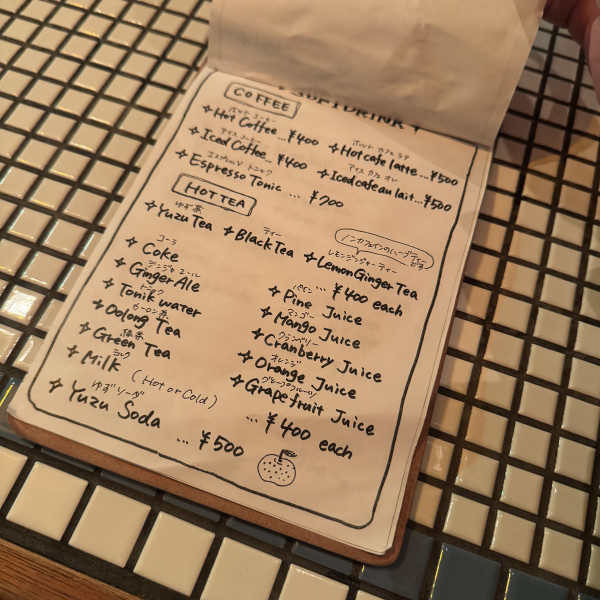 COFFEE
ホット コーヒー
✧ Hot Coffee... ¥400
ホット カフェ ラテ
✧ Hot cafe latte... ¥500
アイス コーヒー
✧ Iced Coffee... ¥400
アイス カフェ オレ
✧ Iced cafe au lait... ¥500
エスプレッソ トニック
✧ Espresso Tonic ... ¥700
HOT TEA
ゆず茶
✧ Yuzu Tea
ティー
✧ Black Tea
レモンジンジャーティー
✧ Lemon Ginger Tea
... ¥400 each
コーラ
✧ Coke
ジンジャエール
✧ Ginger Ale
トニック
✧ Tonik water
ウーロン茶
✧ Oolong Tea
緑茶
✧ Green Tea
ミルク
✧ Milk (Hot or Cold)
パイン
✧ Pine Juice
マンゴー
✧ Mango Juice
クランベリー
✧ Cranberry Juice
オレンジ
✧ Orange Juice
グレープフルーツ
✧ Grapefruit Juice
... ¥400 each
ゆずソーダ
✧ Yuzu Soda
... ¥500